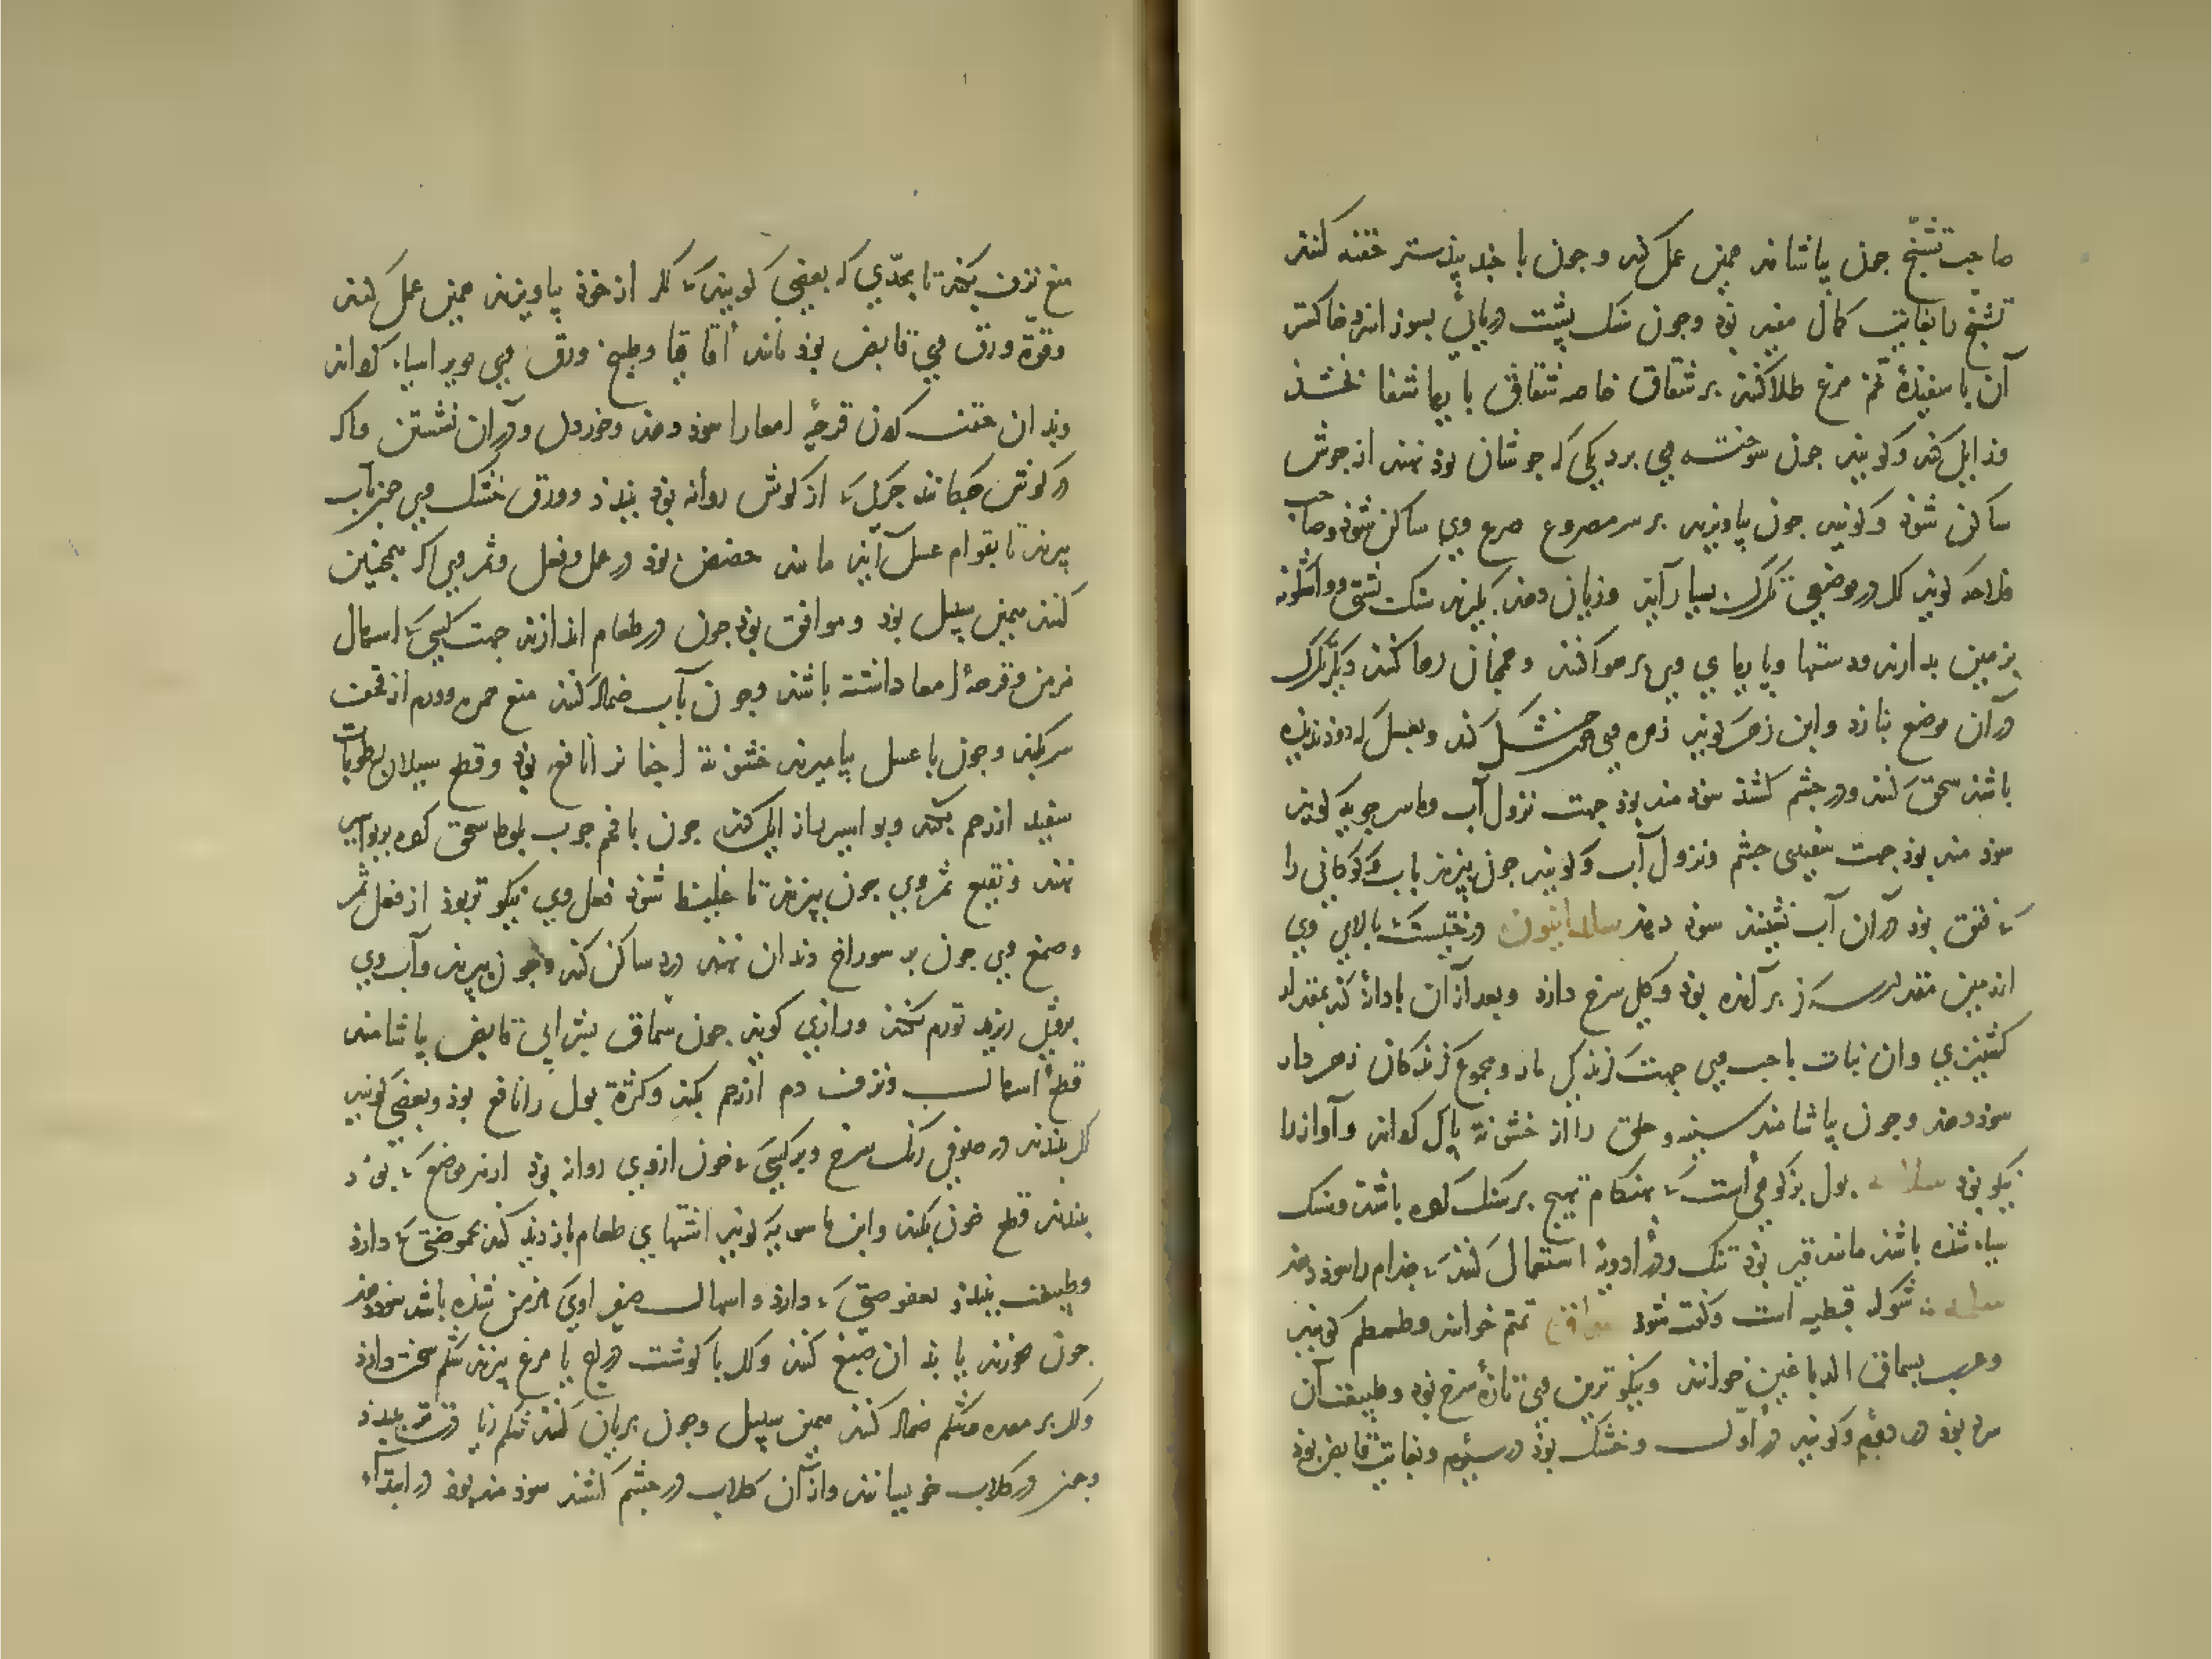 صاحب تشنج چون بیاشامد همین عمل کند و چون با جند بیدستر حقنه کنند
تشنج را بغایت کمال مفید بوذ و چون سنک پشت دریائی بسوزانند و خاکستر
آن با سفیدهٔ تخم مرغ طلا کنند بر شقاق خاصه شقاق پایها شفا بخشد
و زایل کند و کویند چون سوخته وی بر دیکی که جوشان بوذ نهند از جوش
ساکن شوذ و کویند چون بیاویزند بر سر مصروع صرع وی ساکن شوذ و صاحب
فلاحه کویند که در موضعی تکرک بسیار آید و زیان دهد بکیرند سنک پشتی و واشکونه
بزمین بدارند و دستها و پایهای وی بر هوا کنند و همچنان رها کنند دیکر تکرک
در آن موضع نبارد و ابن زهر کوید زهره وی خشک کند و بعسل که دوذ ندیده
باشد سحق کنند و در چشم کشند سوذمند بوذ جهت نزول آب و ماسرجویه کوید
سوذمند بوذ جهت سفیدی چشم و نزول آب و کویند چون بپزند بآب و کوذکانی را
که فتق بوذ در آن آب نشینند سوذ دهد درختیست که بالای وی
از زمین مقدار سه کز بر آمده بوذ و کل سرخ دارد و بعد از آن بار دانه کند بمقدار
کشنیزی و آن نبات با حب وی جهت کزندکی مار و مجموع کزندکان زهردار
سوذ دهد و چون بیاشامند سینه و حلق را از خشونة پاک کرداند و آواز را
نیکو بوذ بول بز کوهی است که بهنکام تهیج بر سنک کرده باشد و سنک
سیاه شده باشد مانند قیر بوذ تنک و در ادویه استعمال کنند که جذام را سوذ دهد
شوکه قبطیه است و کفته شوذ تمتم خوانند و طمطم کویند
و عرب سماق الدباغین خوانند و نیکوترین وی تازهٔ سرخ بوذ و طبیعت آن
سرد بوذ در دوم و کویند در اول و خشک بوذ در سیوم و بغایت قابض بوذ
منع نزف بکند تا بحدی که بعضی کویند که اکر از خوذ بیاویزند همین عمل کند
و قوة ورق وی قابض بوذ مانند اقاقیا و طبیخ ورق وی موی را سیاه کرداند
و بدان حقنه کردن قرحهٔ امعا را سوذ دهد و خوردن و در آن نشستن و اکر
در کوش چکانند چرک که از کوش روانه بوذ ببندد و ورق خشک وی چون بآب
بپزند تا بقوام عسل آید مانند حضض بوذ در عمل و فعل و ثمر وی اکر همچنین
کنند همین سبیل بوذ و موافق بوذ چون در طعام اندازند جهت کسی که اسهال
مزمن و قرحهٔ امعا داشته باشند و چون بآب ضماد کنند منع حمره و ورم از قحف
سر بکند و چون با عسل بیامیزند خشونة اجفان را نافع بوذ و قطع سیلان رطوبات
سفید از رحم بکند و بواسیر زایل کند چون با فحم چوب بلوط سحق کرده بر بواسیر
نهند و نقیع ثمر وی چون بپزند تا غلیظ شوذ فعل وی نیکوتر بوذ از فعل ثمر
و صمغ وی چون بر سوراخ دندان نهند درد ساکن کند و چون بپزند و آب وی
بریزند تورم نکند و رازی کوید چون سماق بشرابی قابض بیاشامند
قطع اسهال و نزف دم از رحم بکند و کثرة بول را نافع بوذ و بعضی کویند
اکر ببندند در صوفی رنک سرخ و بر کسی که خون از وی روانه بوذ از هر موضع که بوذ
ببندند قطع خون بکند و ابن ماسویه کوید اشتهای طعام بازدید کند بحموضتی که دارد
و طبیعت ببندد بعفوصتی که دارد و اسهال صفراوی که مزمن شده باشد سوذ دهد
چون بخورند یا بذان صبغ کنند و اکر با کوشت دراج یا مرغ بپزند شکم سخت دارد
و اکر بر معده و شکم ضماد کنند همین سبیل و چون بریان کنند شکم زیادت تر ببندد
و چون در کلاب خیسانند و از آن کلاب در چشم کشند سوذمند بوذ در ابتداء